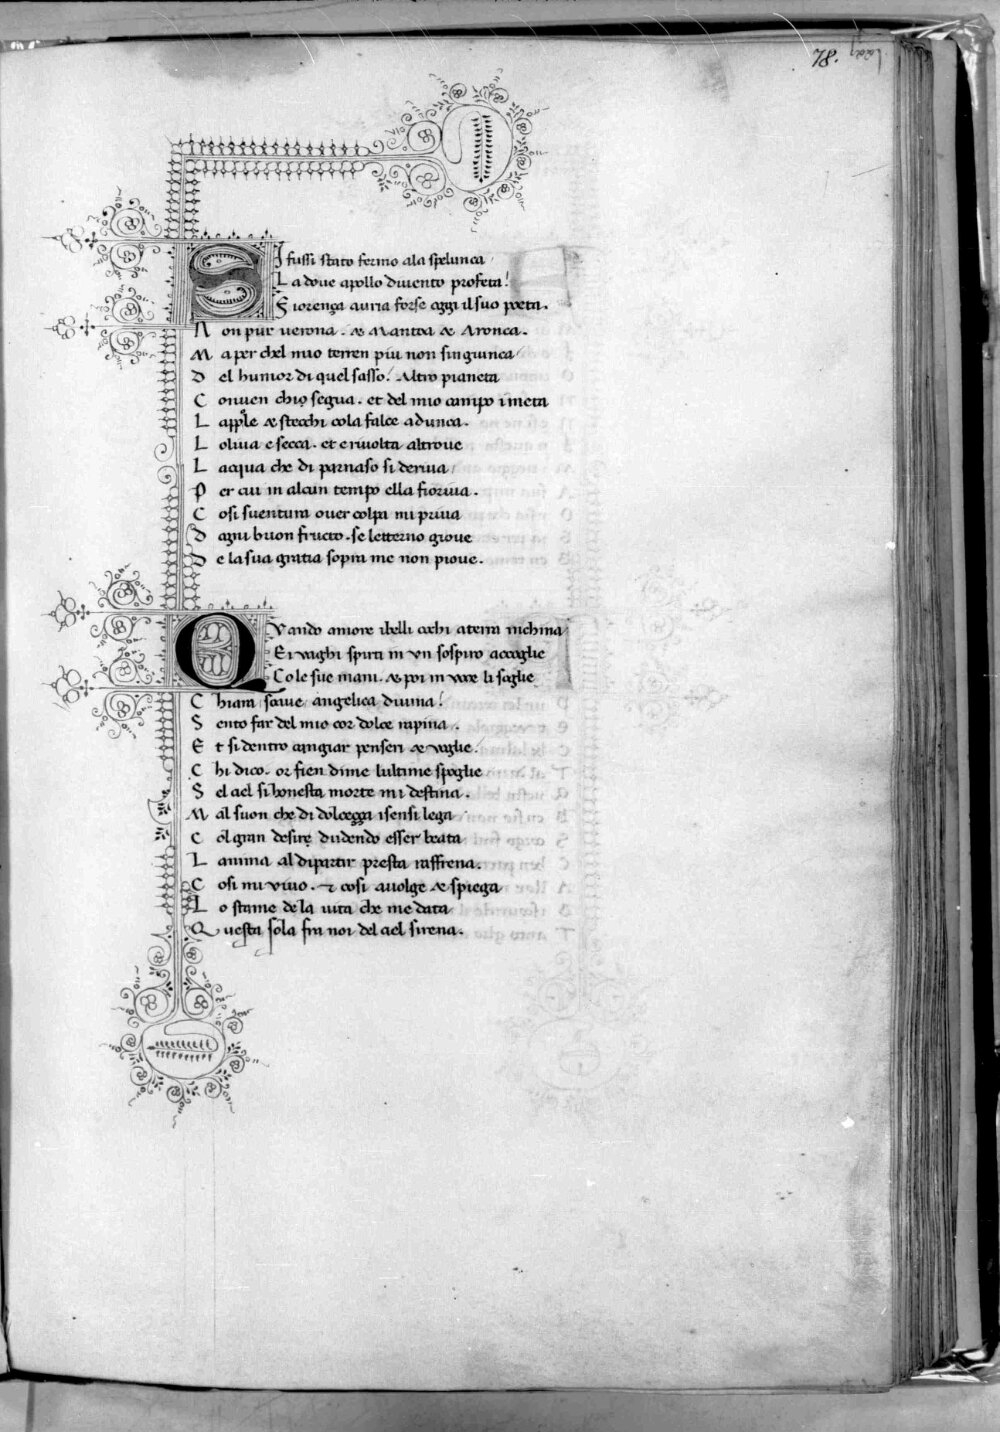 78.
SI fussi stato fermo ala spelunca
La doue apollo diuento profeta!
Fiorenza auria forse oggi il suo poeta.
Non pur uerona. & Mantoa & Aronca.
Ma per chel mio terren piu non singiunca
Del humor di quel sasso! Altro pianeta
Conuen chio segua. et del mio campo i meta
Lappole & stecchi cola falce adunca.
Loliua e secca. et e riuolta altroue
Lacqua che di parnaso si deriua
Per cui in alcun tempo ella fioriua.
Cosi suentura ouer colpa mi priua
Dogni buon fructo. se letterno gioue
De la sua gratia sopra me non pioue.
QVando amore ibelli occhi a terra inchina
E i uaghi spirti in vn sospiro accoglie
Co le sue mani. & poi in voce li scioglie
Chiara soaue angelica diuina!
Sento far del mio cor dolce rapina.
Et si dentro cangiar penseri & voglie!
Chi dico. or fien di me lultime spoglie
Sel ciel si honesta morte mi destina.
Mal suon che di dolcezza i sensi lega
Col gran desire dudendo esser beata
Lanima al dipartir presta raffrena.
Cosi mi viuo. & cosi auolge & spiega
Lo stame de la uita che me data
Questa sola fra noi del ciel sirena.